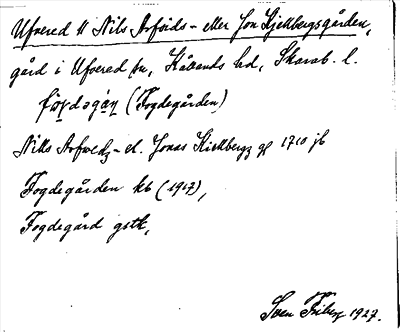 Ufvered 11 Nils Arfvids- eller Jon Kjellbergsgården,
gård i Ufvered sn, Kållands hd, Skarab. l.
(Fogdegården)
Nills Arfwedz- el. Jonas Kiellbergz gd 1710 jb
Fogdegården kb (1917),
Fogdegård gstk,
Sven Friberg 1927.